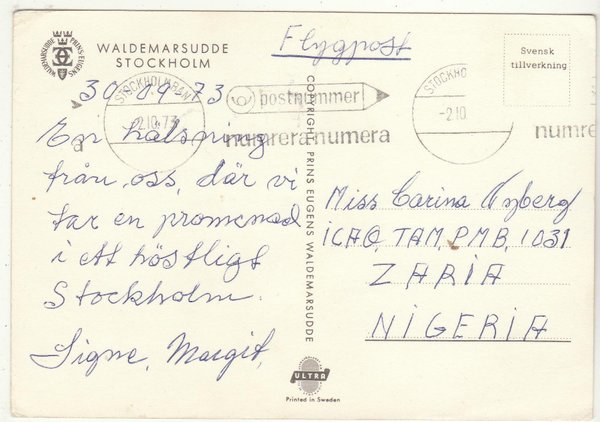 WALDEMARSUDDE
STOCKHOLM
PRINS EUGENS WALDEMARSUDDE
Flygpost
Svensk
tillverkning
30 09 73
STOCKHOLM BAN
-2.10.73
postnummer
numrera-numera
STOCKHO
-2.10
numre
En hälsning
från oss, där vi
tar en promenad
i ett höstligt
Stockholm.
Signe, Margit,
COPYRIGHT PRINS EUGENS WALDEMARSUDDE
Miss Carina Nyberg
ICAO, TAM, P.M.B. 1031
ZARIA
NIGERIA
ULTRA
Printed in Sweden